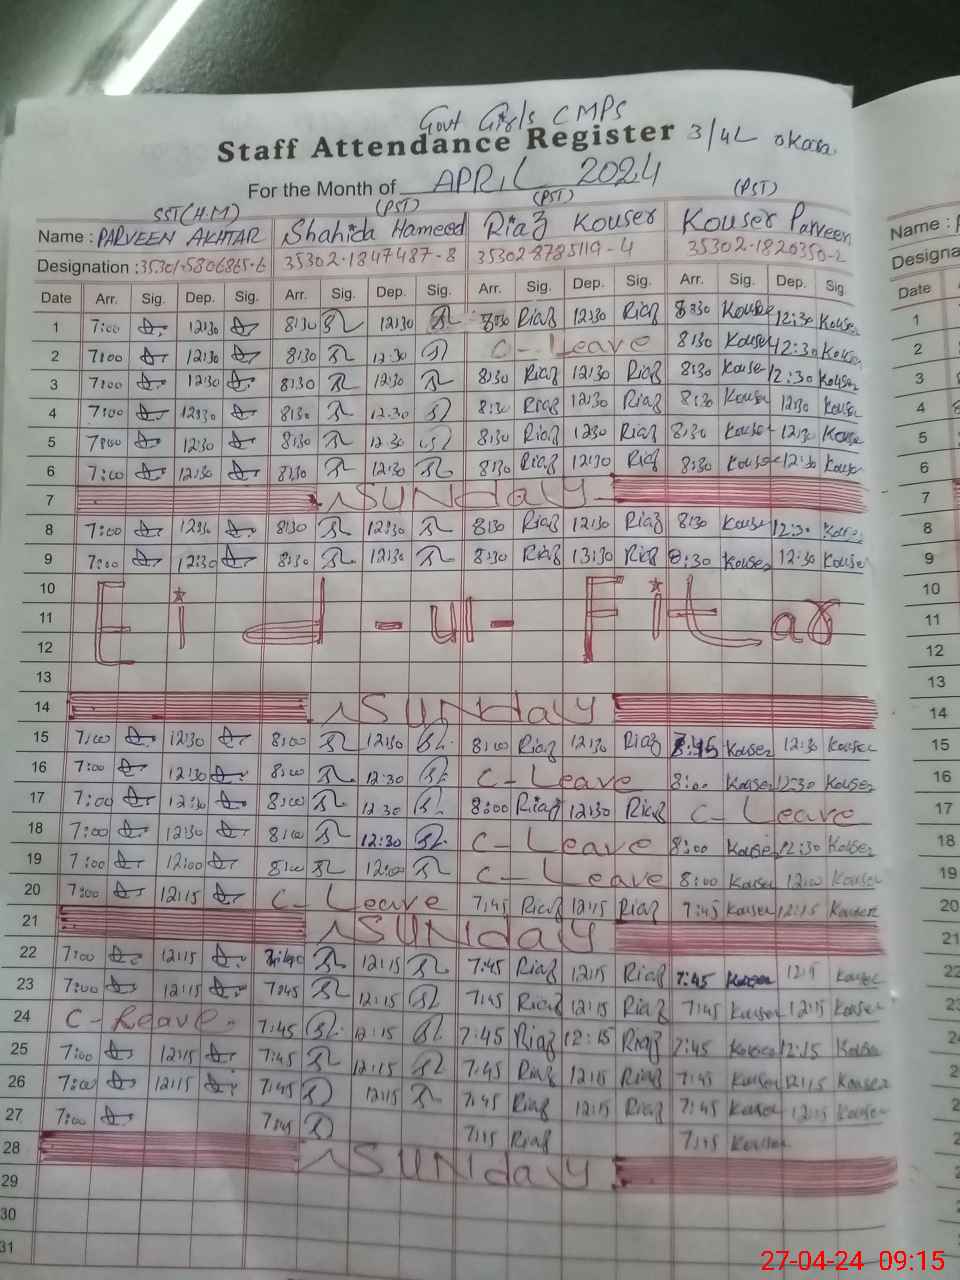 Govt Girls CMPS
Staff Attendance Register 3/4L okara
For the Month of APRIL 2024
SST(H.M) (PST) (PST) (PST)
Name : PARVEEN AKHTAR Shahida Hameed Riaz Kouser Kouser Parveen Name :
Designation : 35301-5806865-6 35302-1847487-8 35302-8785119-4 35302-1820350-2 Designa
Date Arr. Sig. Dep. Sig. Arr. Sig. Dep. Sig. Arr. Sig. Dep. Sig. Arr. Sig. Dep. Sig. Date
1 7:00 12:30 8:30 12:30 8:30 Riaz 12:30 Riaz 8:30 Kouser 12:30 Kouser 1
2 7:00 12:30 8:30 12:30 C-Leave 8:30 Kouser 12:30 Kouser 2
3 7:00 12:30 8:30 12:30 8:30 Riaz 12:30 Riaz 8:30 Kouser 12:30 Kouser 3
4 7:00 12:30 8:30 12:30 8:30 Riaz 12:30 Riaz 8:30 Kouser 12:30 Kouser 4
5 7:00 12:30 8:30 12:30 8:30 Riaz 12:30 Riaz 8:30 Kouser 12:30 Kouser 5
6 7:00 12:30 8:30 12:30 8:30 Riaz 12:30 Riaz 8:30 Kouser 12:30 Kouser 6
7 SUNday 7
8 7:00 12:30 8:30 12:30 8:30 Riaz 12:30 Riaz 8:30 Kouser 12:30 Kouser 8
9 7:00 12:30 8:30 12:30 8:30 Riaz 13:30 Riaz 8:30 Kouser 12:30 Kouser 9
10 10
11 Eid-ul-Fitar 11
12 12
13 13
14 SUNday 14
15 7:00 12:30 8:00 12:30 8:00 Riaz 12:30 Riaz 7:45 Kouser 12:30 Kouser 15
16 7:00 12:30 8:00 12:30 C-Leave 8:00 Kouser 12:30 Kouser 16
17 7:00 12:30 8:00 12:30 8:00 Riaz 12:30 Riaz C-Leave 17
18 7:00 12:30 8:00 12:30 C-Leave 8:00 Kouser 12:30 Kouser 18
19 7:00 12:00 8:00 12:00 C-Leave 8:00 Kouser 12:00 Kouser 19
20 7:00 12:15 C-Leave 7:45 Riaz 12:15 Riaz 7:45 Kouser 12:15 Kouser 20
21 SUNday 21
22 7:00 12:15 12:15 7:45 Riaz 12:15 Riaz 7:45 Kouser 12:15 Kouser 22
23 7:00 12:15 7:45 12:15 7:45 Riaz 12:15 Riaz 7:45 Kouser 12:15 Kouser 23
24 C-Leave 7:45 12:15 7:45 Riaz 12:15 Riaz 7:45 Kouser 12:15 Kouser
25 7:00 12:15 7:45 12:15 7:45 Riaz 12:15 Riaz 7:45 Kouser 12:15 Kouser
26 7:00 12:15 7:45 12:15 7:45 Riaz 12:15 Riaz 7:45 Kouser 12:15 Kouser
27 7:00 7:45 7:15 Riaz Kouser
28 SUNday
29
30
31
27-04-24 09:15